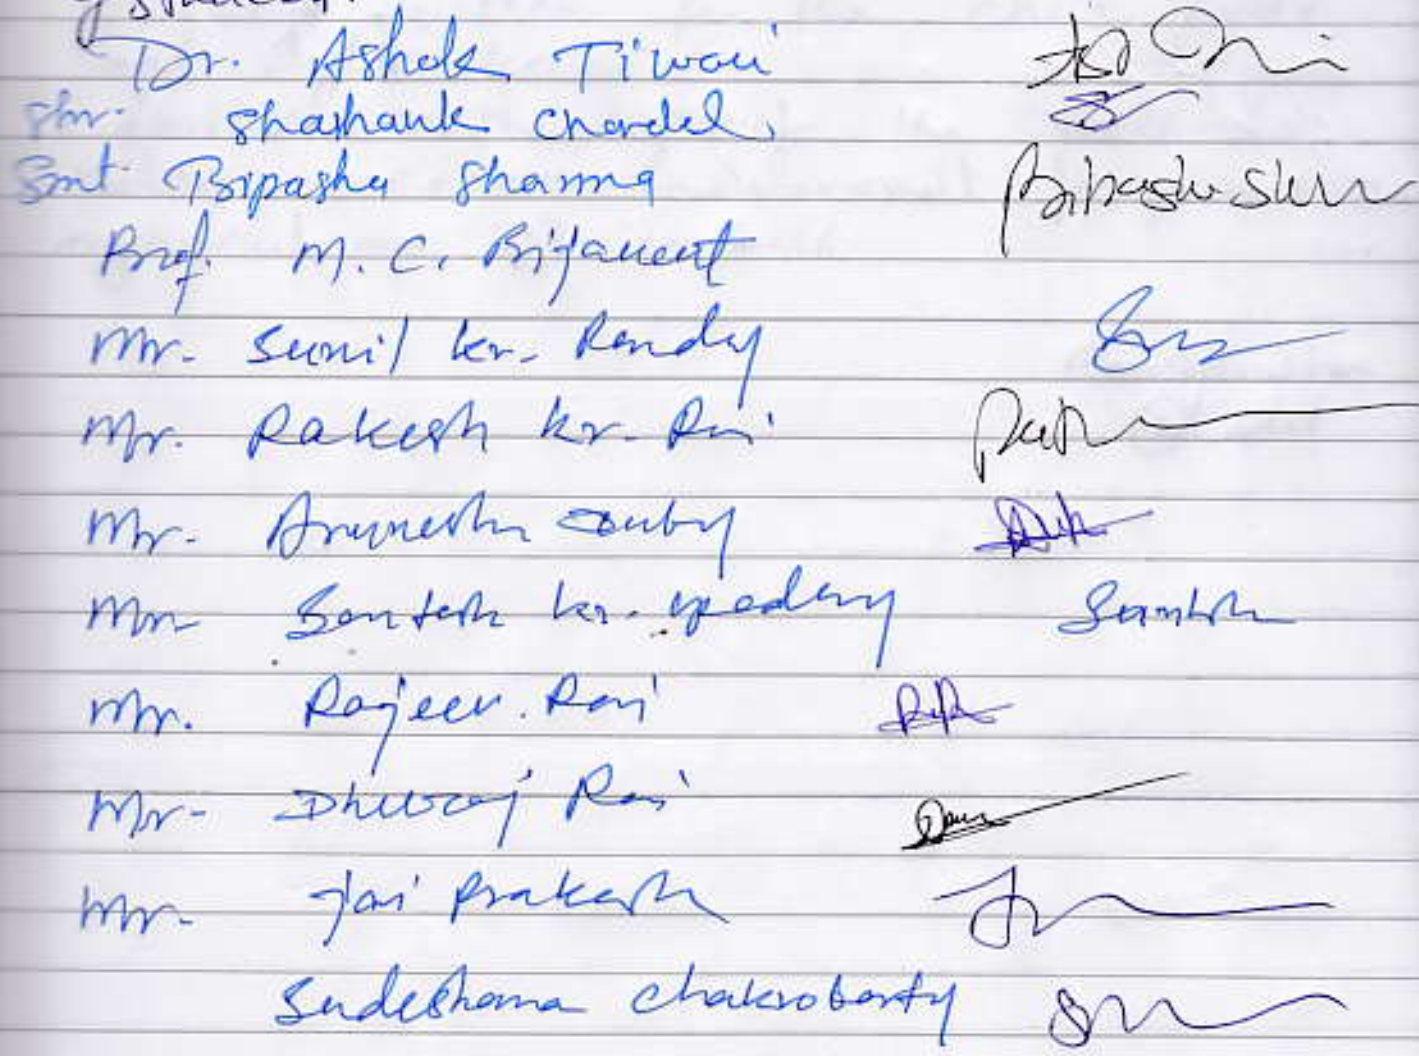 Dr. Ashok Tiwari
Shr. Shashank Chandel
Smt. Bipasha Sharma Bipasha Sharma
Prof. M. C. Bijawat
Mr. Sunil kr. Pandey
Mr. Rakesh kr. Rai
Mr. Arunesh Dubey
Mr. Santosh kr. upadhyay Santosh
Mr. Rajeev. Rai
Mr- Dheeraj Rai
Mr. Jai Prakash
Sudeshana Chakroborty